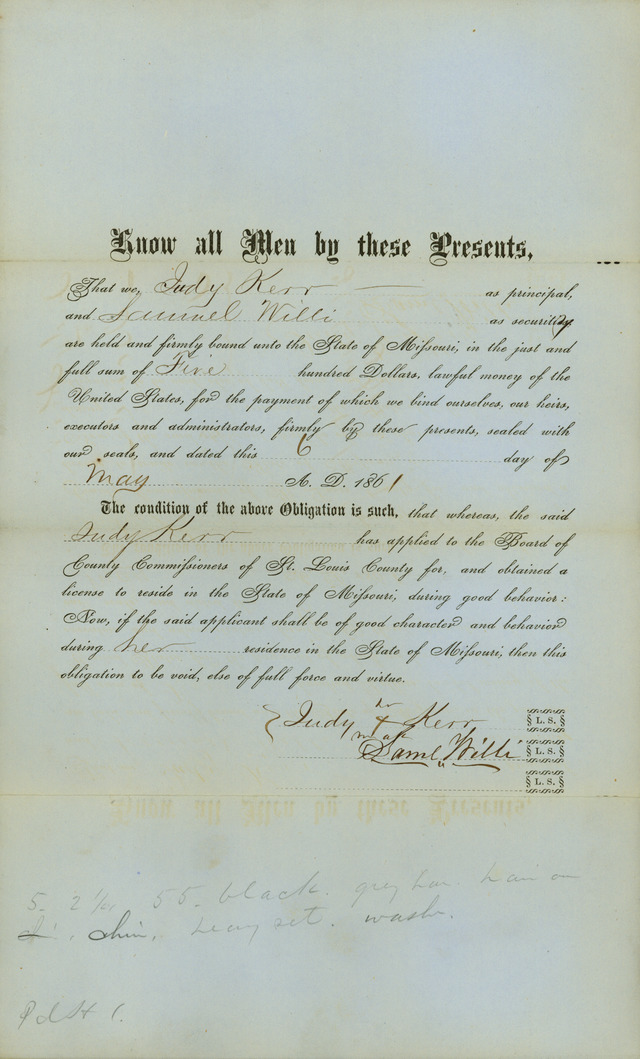 Know all Men by these Presents,
That we, Judy Kerr as principal,
and Samuel Willi as security
are held and firmly bound unto the State of Missouri, in the just and
full sum of Five hundred Dollars, lawful money of the
United States, for the payment of which we bind ourselves, our heirs,
executors and administrators, firmly by these presents, sealed with
our seals, and dated this 6 day of
May A. D. 1861
The condition of the above Obligation is such, that whereas, the said
Judy Kerr has applied to the Board of
County Commissioners of St. Louis County for, and obtained a
license to reside in the State of Missouri, during good behavior:
Now, if the said applicant shall be of good character and behavior
during her residence in the State of Missouri, then this
obligation to be void, else of full force and virtue.
her
Judy + Kerr L. S.
mark
Saml Willi L. S.
L. S.
5- 2 55- black. grey hair on
chin, heavy set. wash.